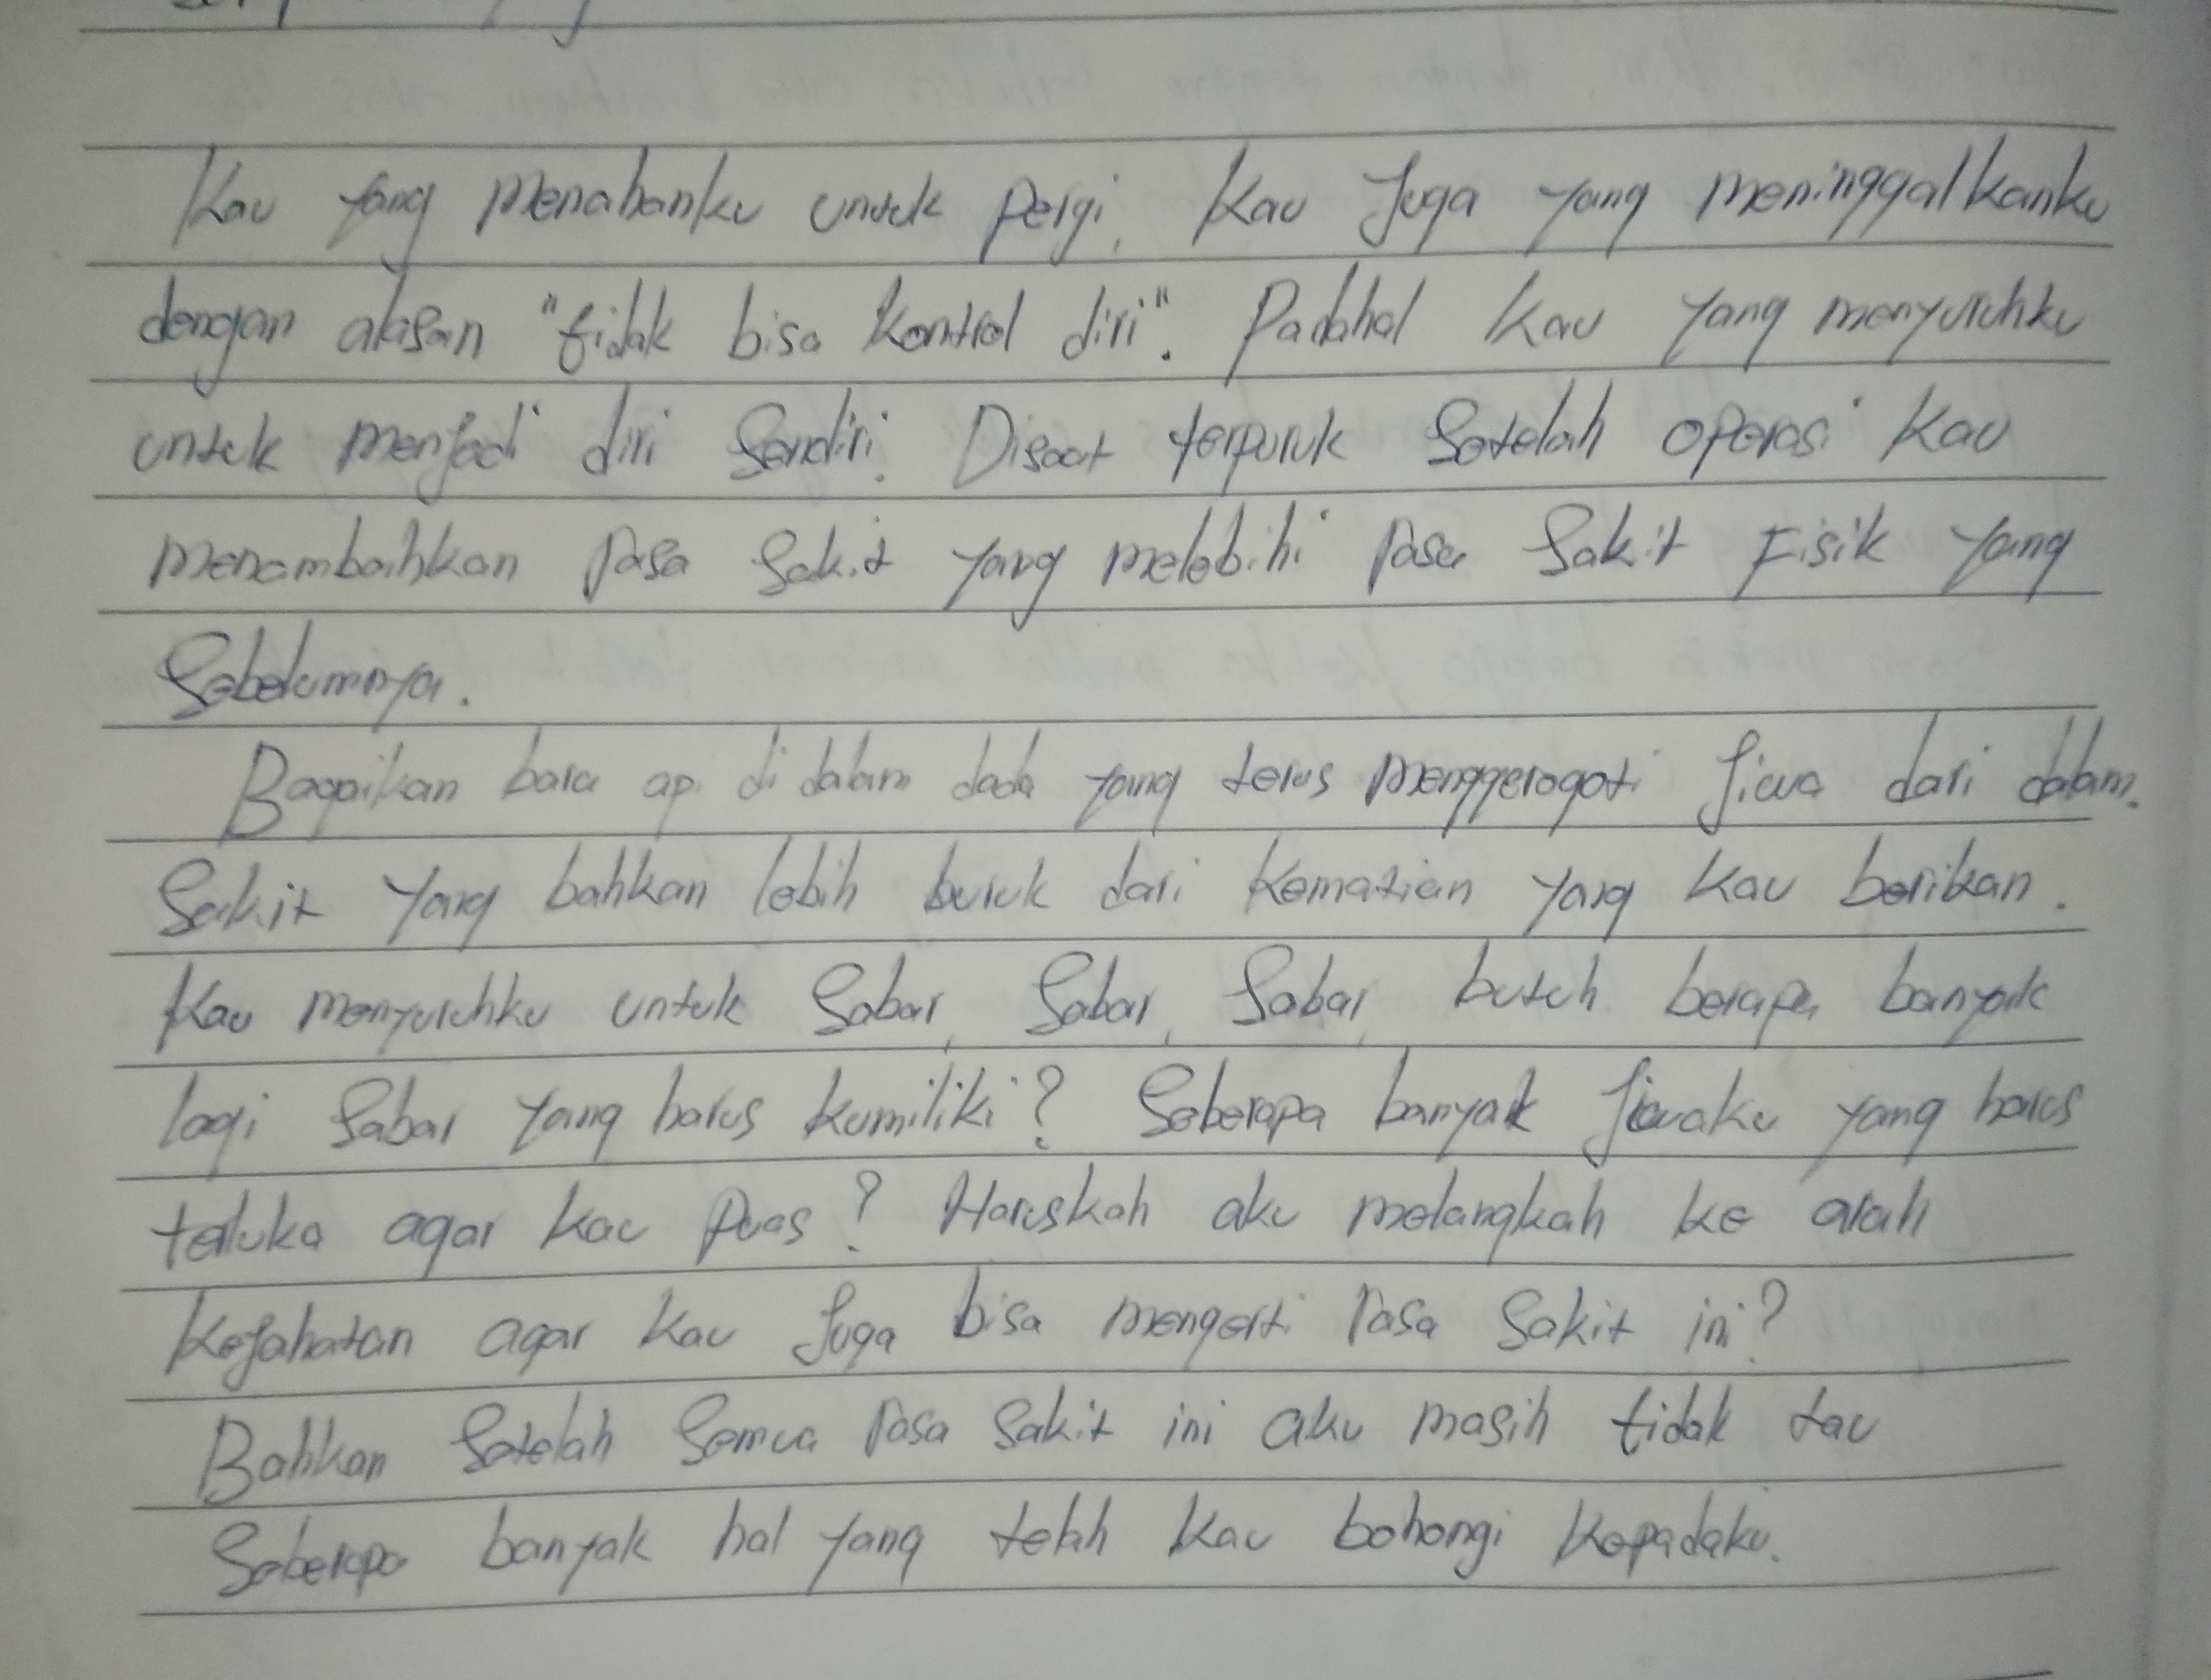 Kau yang menahanku untuk pergi, Kau Juga yang meninggalkanku
dengan alasan "tidak bisa kontrol diri". Padahal Kau yang menyuruhku
untuk menjadi diri sendiri. Disaat terpuruk Setelah operasi Kau
menambahkan rasa Sakit yang melebihi rasa Sakit Fisik yang
Sebelumnya.
Bagaikan bara api di dalam dada yang terus menggerogoti Jiwa dari dalam.
Sakit yang bahkan lebih buruk dari Kematian yang Kau berikan.
Kau menyuruhku untuk Sabar, Sabar, Sabar, butuh berapa banyak
lagi Sabar yang harus kumiliki? Seberapa banyak Jiwaku yang harus
terluka agar kau puas? Haruskah aku melangkah ke arah
Kejahatan agar Kau Juga bisa mengerti rasa Sakit ini?
Bahkan Setelah Semua rasa Sakit ini aku masih tidak tau
Seberapa banyak hal yang telah Kau bohongi Kepadaku.